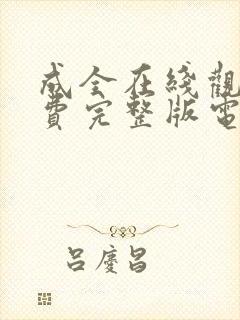 成全在綫觀
費完整版電
呂慶昌